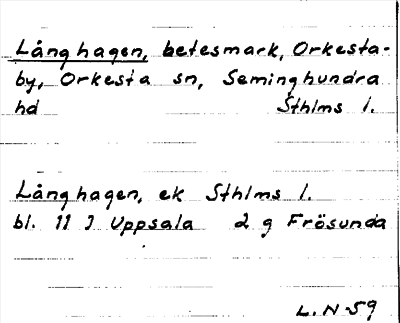 Långhagen, betesmark, Orkesta-
by, Orkesta sn, Seminghundra
hd Sthlms l.
Långhagen, ek Sthlms l.
bl. 11 I Uppsala 2 g Frösunda
L.N-59